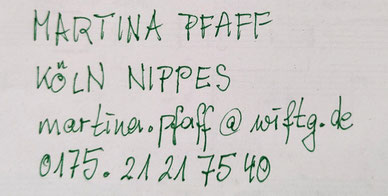 MARTINA PFAFF
KÖLN NIPPES
martina.pfaff@wiftg.de
0175. 21 21 75 40